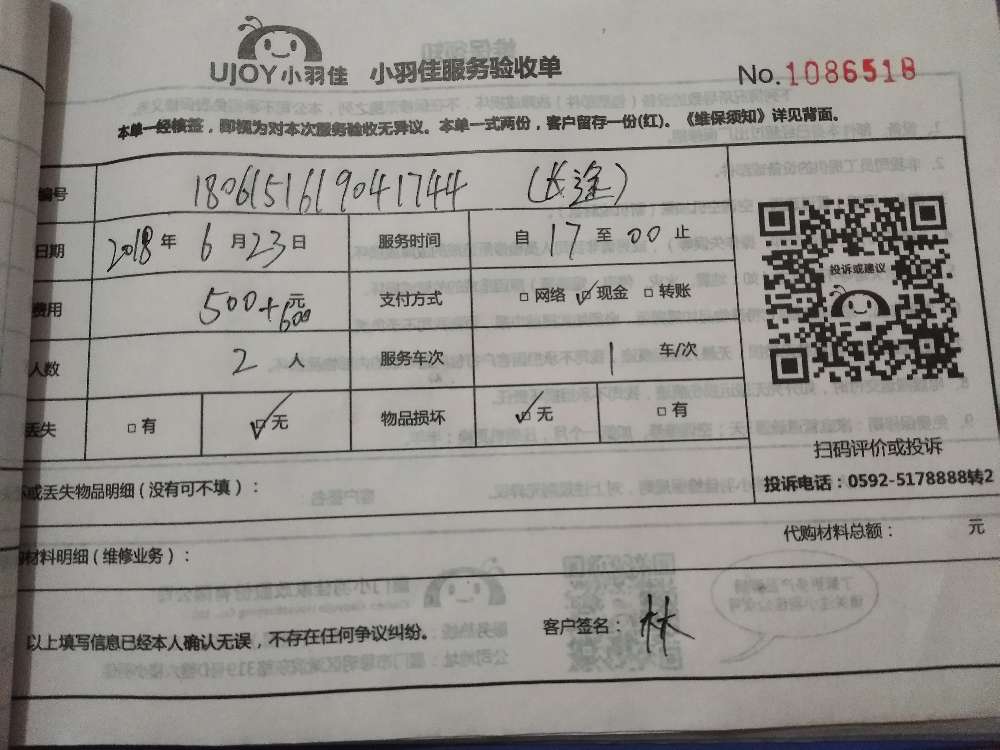 UJOY小羽佳 小羽佳服务验收单
No.1086518
本单一经核签，即视为对本次服务验收无异议。本单一式两份，客户留存一份(红)。《维保须知》详见背面。
编号 1806151619041744 (长途)
日期 2018 年 6 月 23 日 服务时间 自 17 至 00 止
费用 500+600 元 支付方式 □ 网络 ☑ 现金 □ 转账
人数 2 人 服务车次 1 车/次
丢失 □ 有 ☑ 无 物品损坏 ☑ 无 □ 有
投诉或建议
扫码评价或投诉
投诉电话：0592-5178888转2
或丢失物品明细（没有可不填）：
代购材料总额： 元
材料明细（维修业务）：
以上填写信息已经本人确认无误，不存在任何争议纠纷。 客户签名： 林